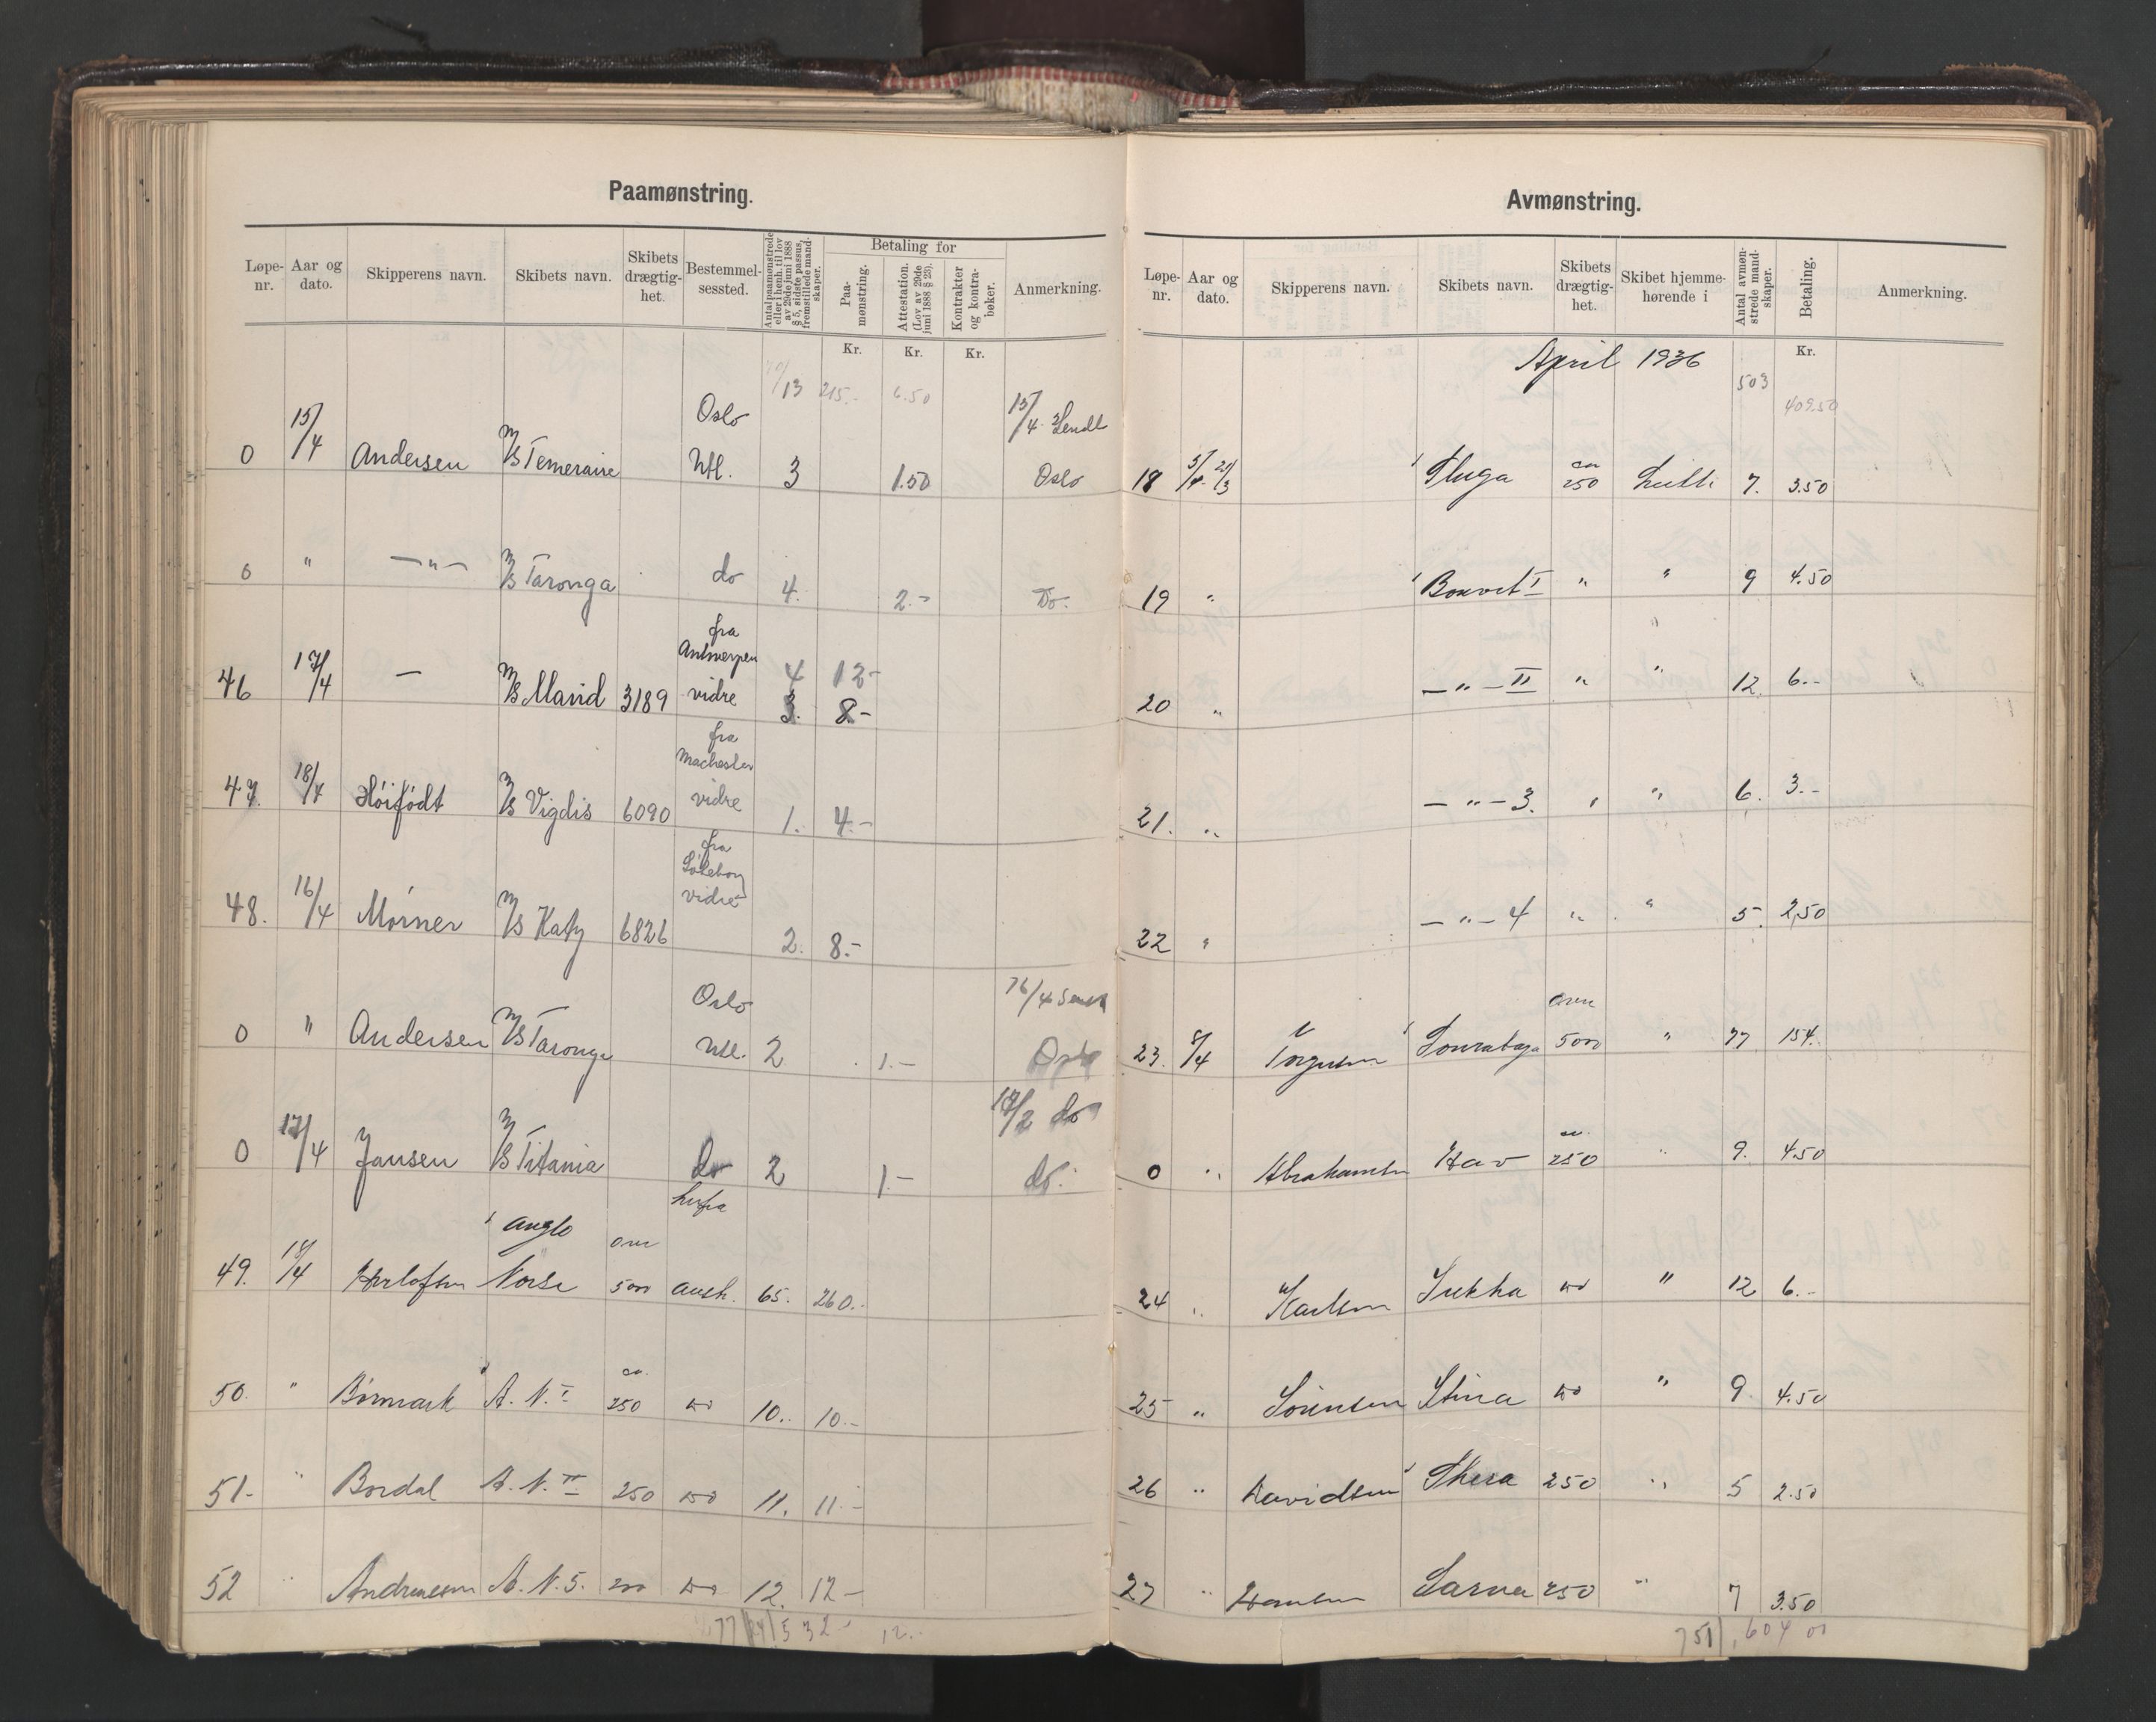 Paamønstring.
Løpe-nr. Aar og dato. Skipperens navn. Skibets navn. Skibets drægtig-het. Bestemmel-sessted. Antal paamønstrede eller i henh. til lov av 29de juni 1888 § 5, sidste passus, fremstillede mand-skaper. Betaling for Paa-mønstring. Attestation. (Lov av 29de juni 1888 § 23). Kontrakter og kontra-bøker. Anmerkning.
Kr. Kr. Kr.
13 215.- 6.50
0 15/4 Andersen M/S Temeraire Oslo Utl. 3 1.50 15/4 Sendt Oslo
0 " — " — M/S Taronga do 4. 2.- Do.
46 17/4 — M/S Marid 3189 fra Antwerpen vidre 4 12- 3. 8-
47. 18/4 Höifödt M/S Vigdis 6090 fra Machester vidre 1. 4.-
48. 16/4 Mörner M/S Katy 6826 fra Göteborg vidre 2. 8.-
0 " Andersen M/S Taronga Oslo Utl. 2 1.- 16/4 Sendt
0 17/4 Jansen M/S Titania do 2 1.- 17/2 do do.
49. 18/4 Anglo Norse over 500 65. 260.-
50. " Börmark A. N. I ca. 250 do 10. 10.-
51- " Bordal A. N. II 250 do 11. 11.-
52 " Andreassen A. N. 5. 200 do 12. 12-
532- 12.-
Avmønstring.
Løpe-nr. Aar og dato. Skipperens navn. Skibets navn. Skibets drægtig-het. Skibet hjemme-hørende i Antal avmøn-strede mand-skaper. Betaling. Anmerkning.
April 1936 Kr.
503 409.50
18 5/4 21/3 Fluga ca 250 7. 3.50
19 " Bouvet I " " 9 4.50
20 " — " — II " " 12 6.-
21. " — " — 3. " " 6. 3.-
22 " — " — 4 " " 5. 2,50
23. 8/4 Torgersen Sourabaya over 500 " 77 154.
0 " Abrahamsen Hav ca. 250 " 9. 4.50
24 " Karlsen do " 12 6.-
25 " Sörensen Stina do " 9. 4.50
26 " Davidsen Thera 250 " 5 2.50
27 " Sarna 250 " 7 3.50
751 604 00